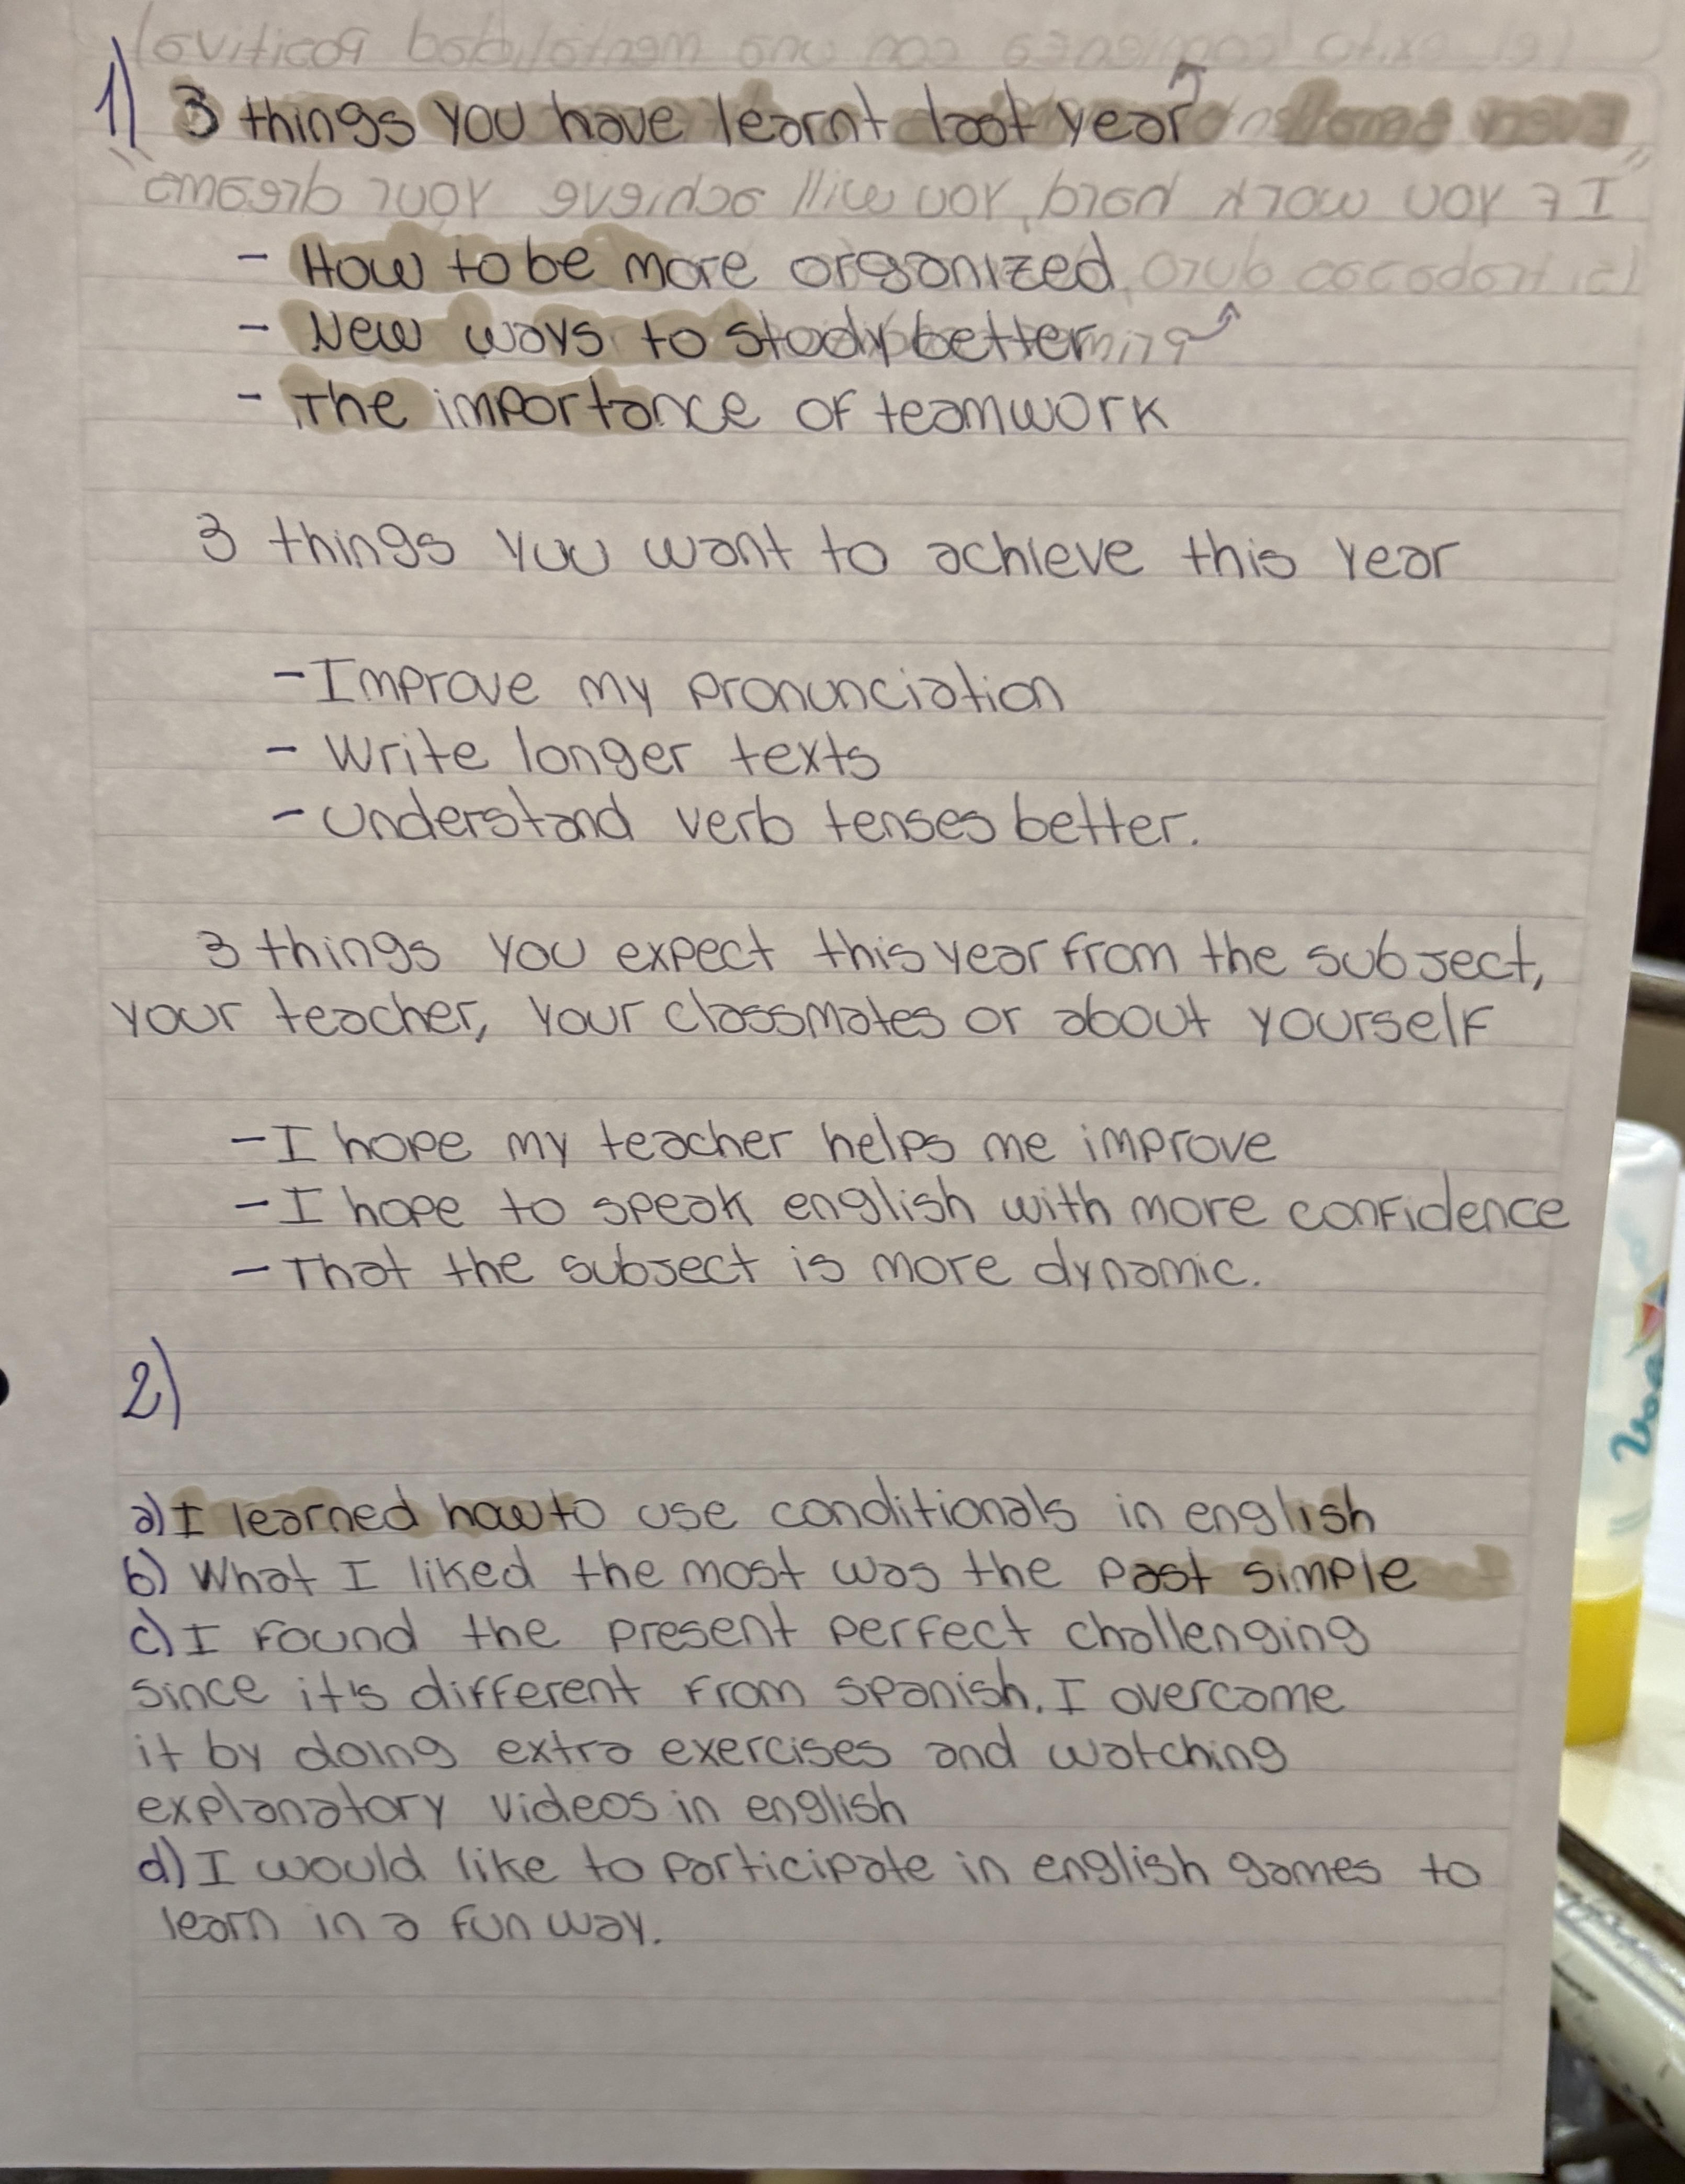 1) 3 things you have learnt last year
- How to be more organized
- New ways to study better
- The importance of teamwork
3 things you want to achieve this year
- Improve my pronunciation
- Write longer texts
- Understand verb tenses better.
3 things you expect this year from the subject,
your teacher, your classmates or about yourself
- I hope my teacher helps me improve
- I hope to speak english with more confidence
- That the subject is more dynamic.
2)
a) I learned how to use conditionals in english
b) What I liked the most was the past simple
c) I found the present perfect challenging
since it's different from spanish. I overcome
it by doing extra exercises and watching
explanatory videos in english
d) I would like to participate in english games to
learn in a fun way.